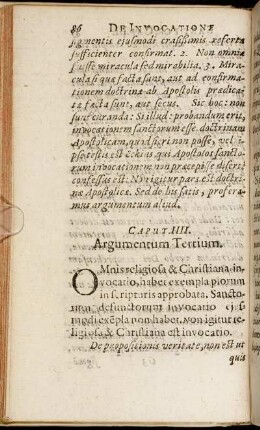 86 DE INVOCATIONE
figmentis ejusmodi crassissimis referta
sufficienter confirmat. 2. Non omnia
fuisse miracula sed mirabilia. 3. Mira-
cula si quæ facta sunt, aut ad confirma-
tionem doctrinæ ab Apostolis prædica-
tæ facta sunt, aut secus. Sic hoc: non
sunt curanda: Si illud: probandum erit,
invocationem sanctorum esse doctrinam
Apostolicam, quod fieri non posse, vel
ipsotestis est Eckius qui Apostolos sancto-
rum invocationem non præcepisse disertè
confessus est. Non igitur pars est doctri-
næ Apostolicæ. Sed de his satis, profera-
mus argumentum aliud.
CAPUT. IIII.
Argumentum Tertium.
OMnis religiosa & Christiana in-
vocatio, habet exempla piorum
in scripturis approbata. Sancto-
rum defunctorum invocatio
modi exẽpla non habet. Non igitur re-
ligiosa & Christiana est invocatio.
De propositionis veritate, non est ut
quis